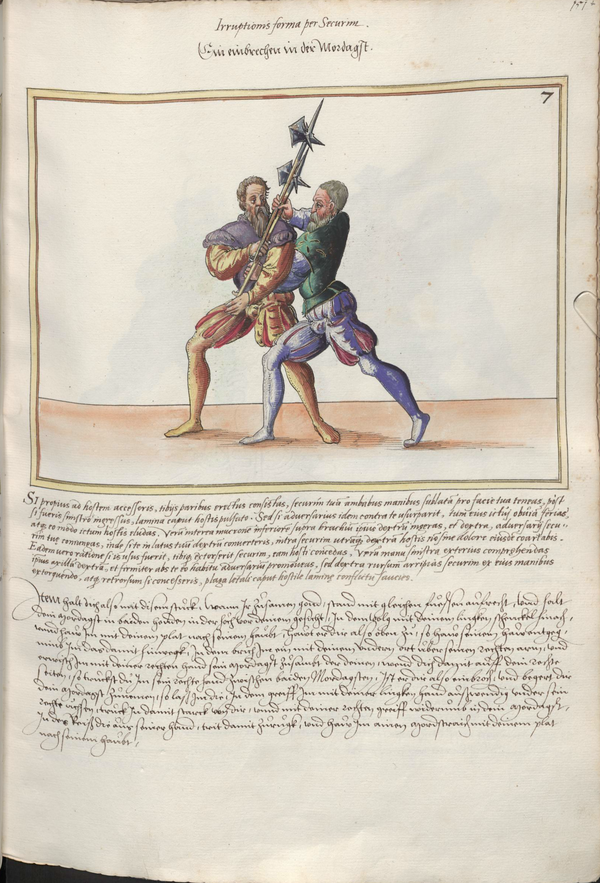 Irruptionis forma per Securim.
Ein einbrechen in der Mordagst.
7
SI propius ad hostem accesseris, tibijs paribus erectus consistas, securim tuā ambabus manibus sublatā pro facie tua teneas, post
si fueris sinistro ingressus, lamina caput hostis pulsato. Sed si adversarius idem contra te usurparit, tum eius ictui obuiā ferias
atq; eo modo ictum hostis eludas. Verū interea mucronē inferiorē supra brachiū ipsius dextrū ingeras, et dextra, adversarij secu-
rim tuę coniungas, inde si te in latus tuū dextrū converteris, intra securim utramq; dextrā hostis nō sine dolore eiusdē coartabis.
Eadem vero ratione si is usus fuerit, tibiq; extorserit securim, eam hosti concedas, Verū manu sinistra exterius comprehendas
ipsius axillā dextrā, et firmiter abs te eo habitu adversariū promoveas, sed dextra rursum arripias securim ex eius manibus
extorquendo, atq; retrorsum si concesseris, plaga letali caput hostile laminę conflictu saucies.
Item halt dich also mit disem stuck, wann Ir zusamen gond, stand mit gleichen fuessen aufrecht, vnd halt
dein mordagst in baiden henden in der höch vor deinem gesicht, In dem volg mit deinem lingken schenckel hinach,
vnd haw Im mit deinem plat nach seinem haubt, hawt er dir also oben zu, so haw seinem haw entgeg-
mit deiner rechten hand sein mordagst zu sambt der deinen, wend dich damit auff dein rechte
seiten, so truckst du Im sein rechte hand zwischen baiden Mordagsten, Ist er dir also einbrochen, vnd begert dir
dein mordagst zunemen, so lass Im die, In dem greiff Im mit deiner lingken hand auswendig vnder sein
rechte vchsen, truck In damit starck von dir, vnnd mit deiner rechten, greiff widerumb in dein mordagst,
In dem reiss Im die aus seiner hand, trit damit zuruck, vnd haw Im ainen mordstraich mit deinem plat
nach seinem haubt.